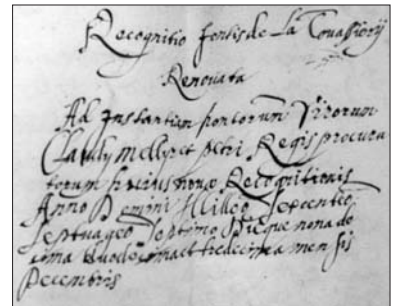 Recognitio fontis de La Touassiory
Renovata
Ad Instantiam honorum Virorum
Claudy Mellyret petri Regis procura
torum huius novæ Recognitionis
Anno Domini Milleo Sexcenteo
Septuageo Septimo Dieque nona de
cima duodecima et tredecima mensis
Decembris